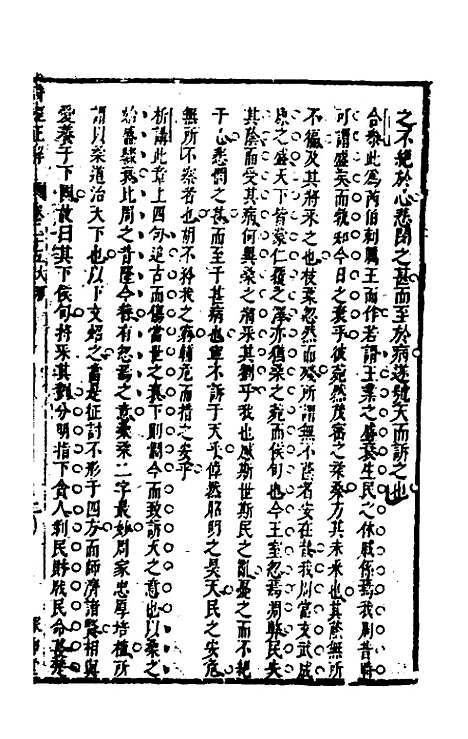 之不絕於心悲閔之甚而至於病遂號天而訴之也
合參此為芮伯刺厲王而作若謂王業之盛衰生民之休戚係焉我周昔時
可謂盛矣而孰知今日之衰乎彼菀然茂密之柔桑方其未采也其陰無所
不徧及其將采之也枝柔忽然而殘所謂無不陰者安在哉我周當文武成
康之盛天下皆蒙仁覆之澤亦猶桑之菀而侯旬也今王室忽焉凋瘵民失
其陰而受其病何異桑之捋采其劉乎我也感斯世斯民之亂憂之而不絕
于心悲憫之甚而至于甚病也寧不訴于天乎倬然昭明之昊天民之安危
無所不察者也胡不矜我之病輔危而措之安乎
析講此章上四句追古而傷當世之衰下則閔今而致訴天之意也以桑之
始盛驟衰比周之昔隆今替有忽焉之意菀桑二字最妙周家忠厚培植所
謂以柔道治天下也以下文 之 是征討不形于四方而師濟諸賢相與
愛養于下國故曰其下侯旬捋采其劉分明指下貪人剝民財殘民命